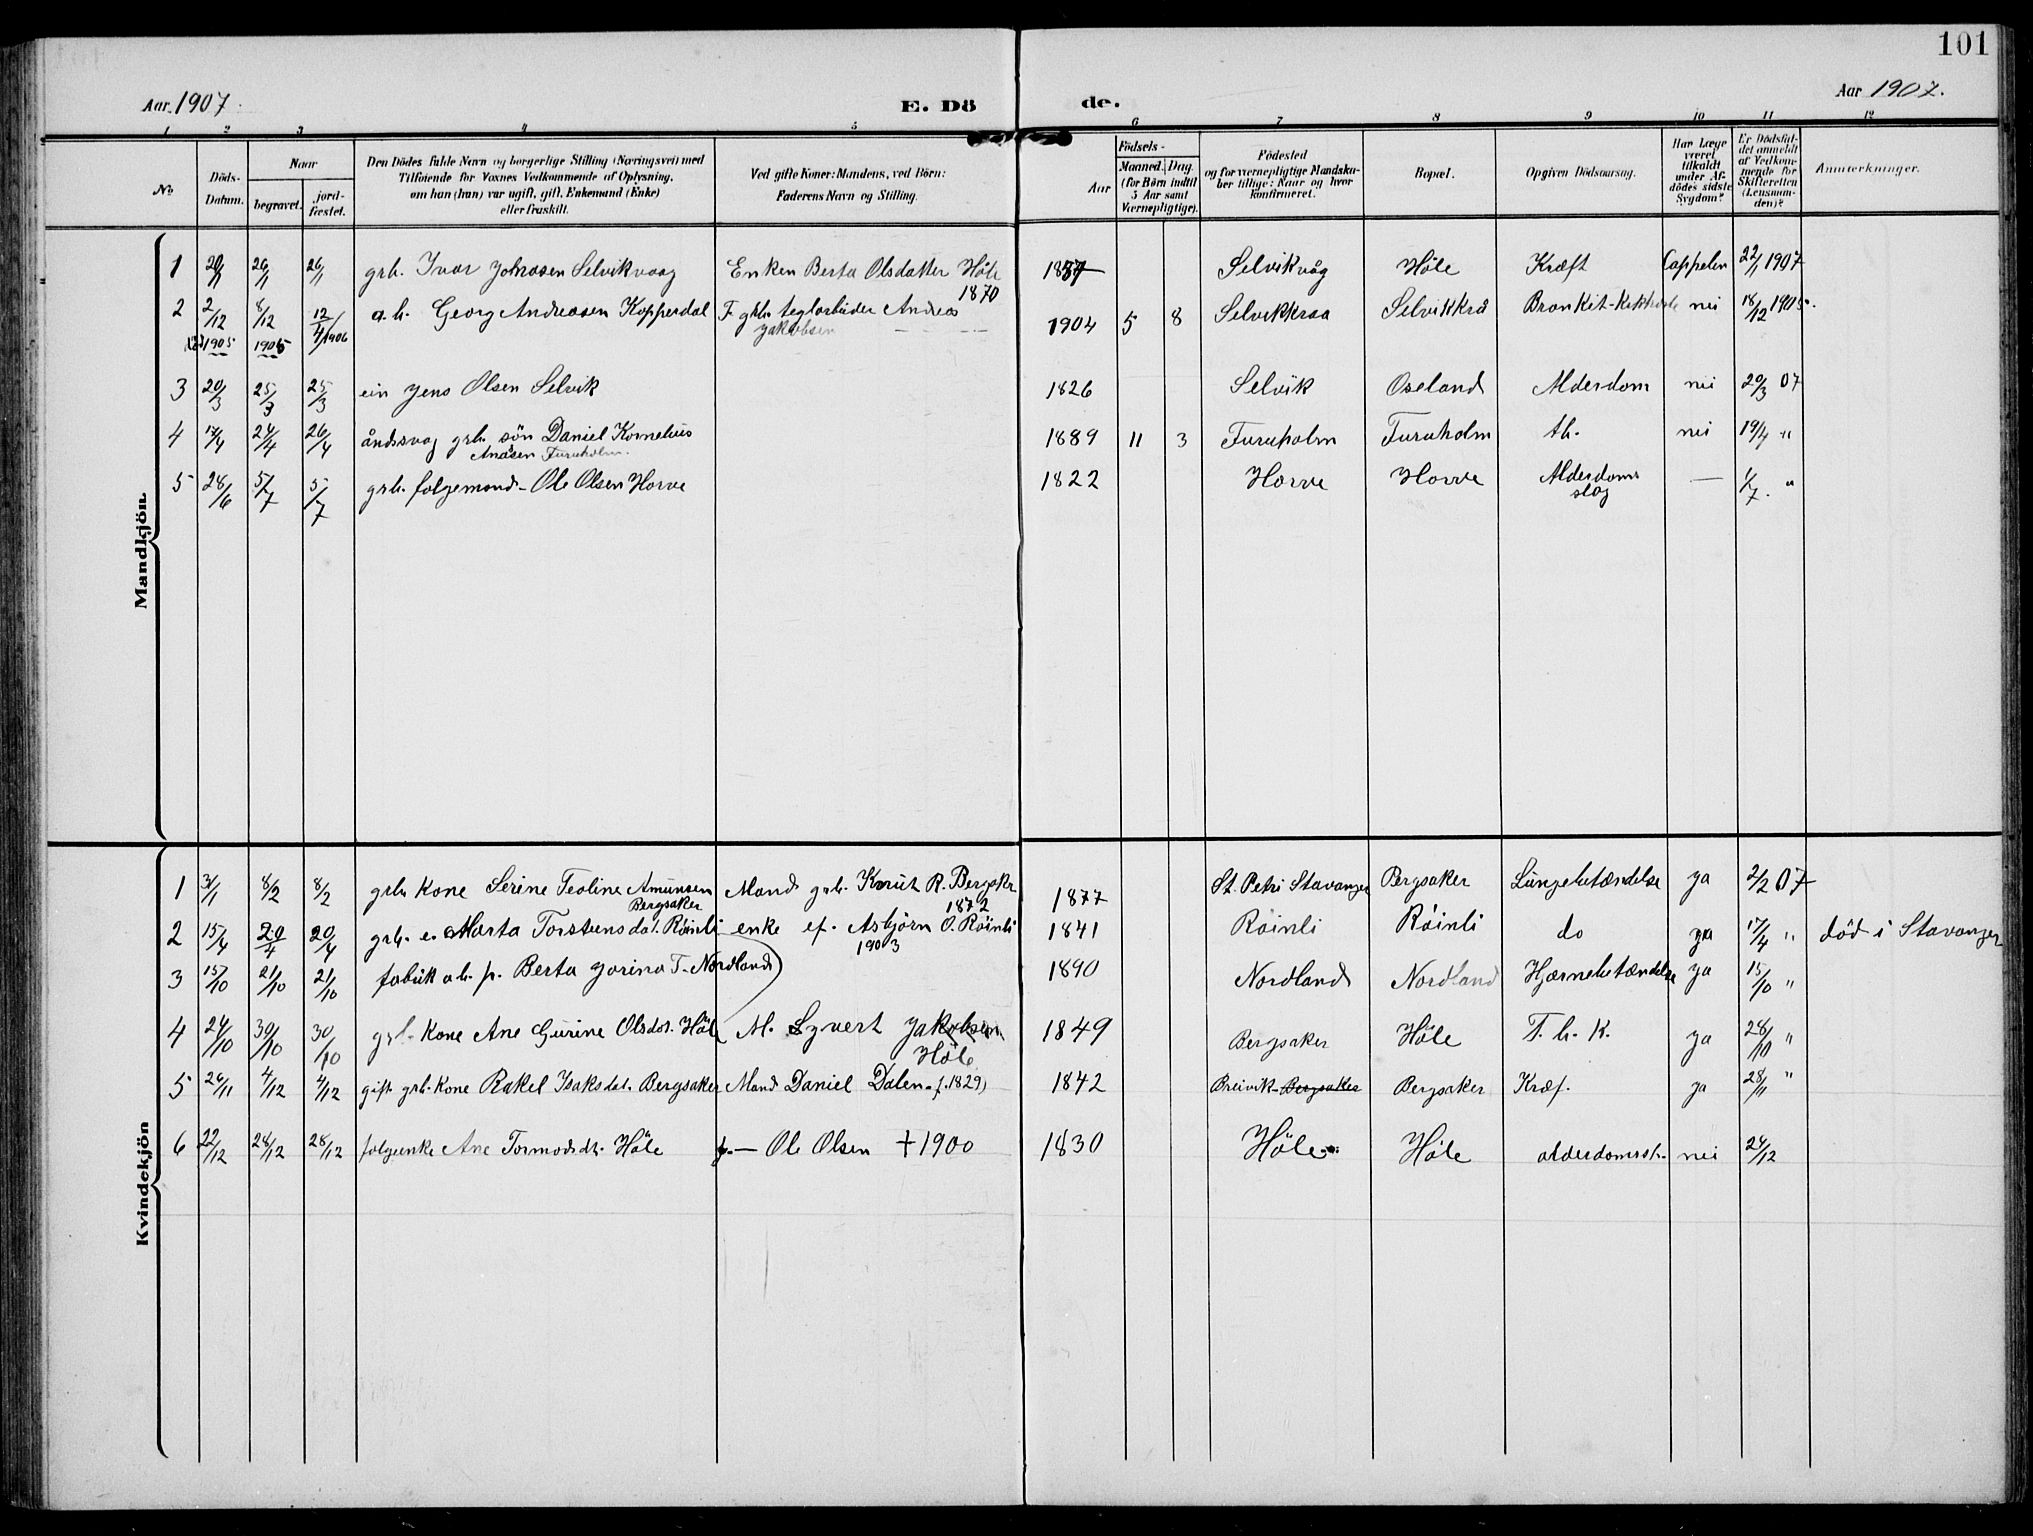 101
Aar 1907. E. Dö de. Aar 1907.
1 2 3 4 5 6 7 8 9 10 11 12
No
Döds-Datum.
Naar
begravet.
jord-fæstet.
Den Dödes fulde Navn og borgerlige Stilling (Næringsvei) med
Tilföiende for Voxnes Vedkommende af Oplysning,
om han (hun) var ugift, gift, Enkemand (Enke)
eller fraskilt.
Ved gifte Koner: Mandens, ved Börn:
Faderens Navn og Stilling.
Födsels-
Aar
Maaned. Dag.
(for Börn indtil
5 Aar samt
Værnepligtige).
Födested
og for værnepligtige Mandsku-
ber tillige: Naar og hvor
konfirmeret.
Bopæl.
Opgiven Dödsaarsag.
Har Læge
været
tilkaldt
under Af-
dödes sidste
Sygdom?
Er Dödsfal-
det anmeldt
af Vedkom-
mende for
Skifteretten
(Lensman-
den)?
Anmærkninger.
Mandkjön
1 20/1 26/1 26/1 grb. Ivar Johnsen Selvikvaag Enken Berta Olsdatter Höle 1870 1837 Selvikvåg Höle Kræft Cappelen 22/1 1907
2 2/12 1905 8/12 1905 12/4 1906 a.b. Georg Andreasen Kopperdal F grb. teglarbeider Andreas Jakobsen 1904 5 8 Selvikkraa Selvikkrå Bronkit-Kikhoste nei 18/12 1905.
3 20/3 25/3 25/3 ein Jens Olsen Selvik 1826 Selvik Oseland Alderdom nei 20/3 07
4 17/4 24/4 26/4 åndssvag grb. sön Daniel Kornelius
Furuholm. 1889 11 3 Furuholm Furuholm tb. nei 19/4 "
5 28/6 5/7 5/7 grb. folgemand - Ole Olsen Horve 1822 Horve Horve Alderdoms
slag — 1/7. "
Kvindekjön
1 31/1 8/2 8/2 grb. kone Serine Teoline Amunsen
Bergsaker Mand grb. Knut R. Bergsaker
1872 1877 St. Petri Stavanger Bergsaker Lungebetændelse ja 2/2 07
2 15/4 20/4 20/4 grb. e. Marta Torsteensdat. Röinli enke ef. Asbjörn O. Röinli
1903 1841 Röinli Röinli do ja 17/4 " död i Stavanger
3 15/10 21/10 21/10 fabrik a b. p. Berta Jorina T. Nordland 1890 Nordland Nordland Hjærnebetændelse ja 15/10 "
4 24/10 30/10 30/10 grb. kone Ane Gurine Olsdat. Höle M. Syvert Jakobsen
Höle 1849 Bergsaker Höle T. b. K. ja 28/10 "
5 26/11 4/12 4/12 gift grb. kone Rakel Isaksdat. Bergsaker Mand Daniel Dalen f. 1829) 1842 Breivik Bergsaker Bergsaker Kræf. ja 28/11 "
6 22/12 28/12 28/12 folgeenke Ane Tormodsdt. Höle — Ole Olsen + 1900 1830 Höle Höle alderdomssl. nei 24/12